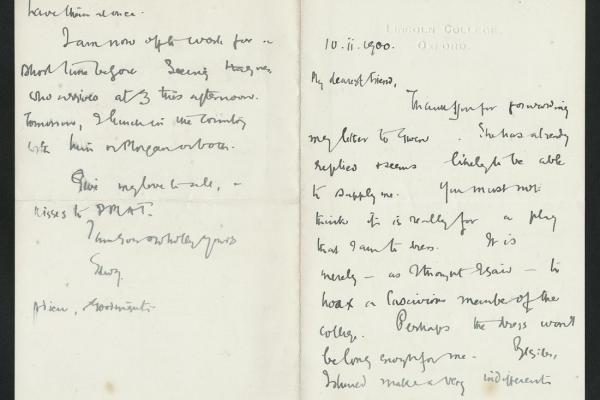 LINCOLN COLLEGE,
OXFORD.
10.ii.1900.
My dearest friend,
Thank you for forwarding
my letter to Gwen. She has already
replied & seems likely to be able
to supply me. You must not
think it is really for a play
that I am to dress. It is
merely – as I thought I said – to
hoax a lascivious member of the
college. Perhaps the dress won't
be long enough for me. Besides,
I should make a very indifferent
have them at once.
I am now off to work for a
short time before seeing Haynes
who arrives at 3 this afternoon.
Tomorrow, I lunch in the country
with him or Morgan or both.
Give my love to all, &
kisses to
I am your wholly yours
Edwy.
Adieu, Goodnight